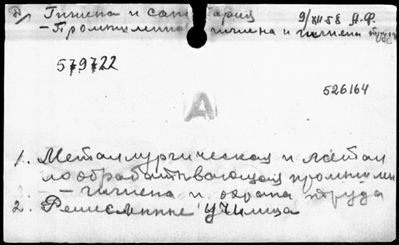 Гигиена и санитария 9/XII 58 А.Ф.
- Промышленная гигиена и гигиена труда
579722
526164
А
1. Металлургическая и метал
лообрабатывающая промышлен
- гигиена и охрана труда
2. Ремесленные училища